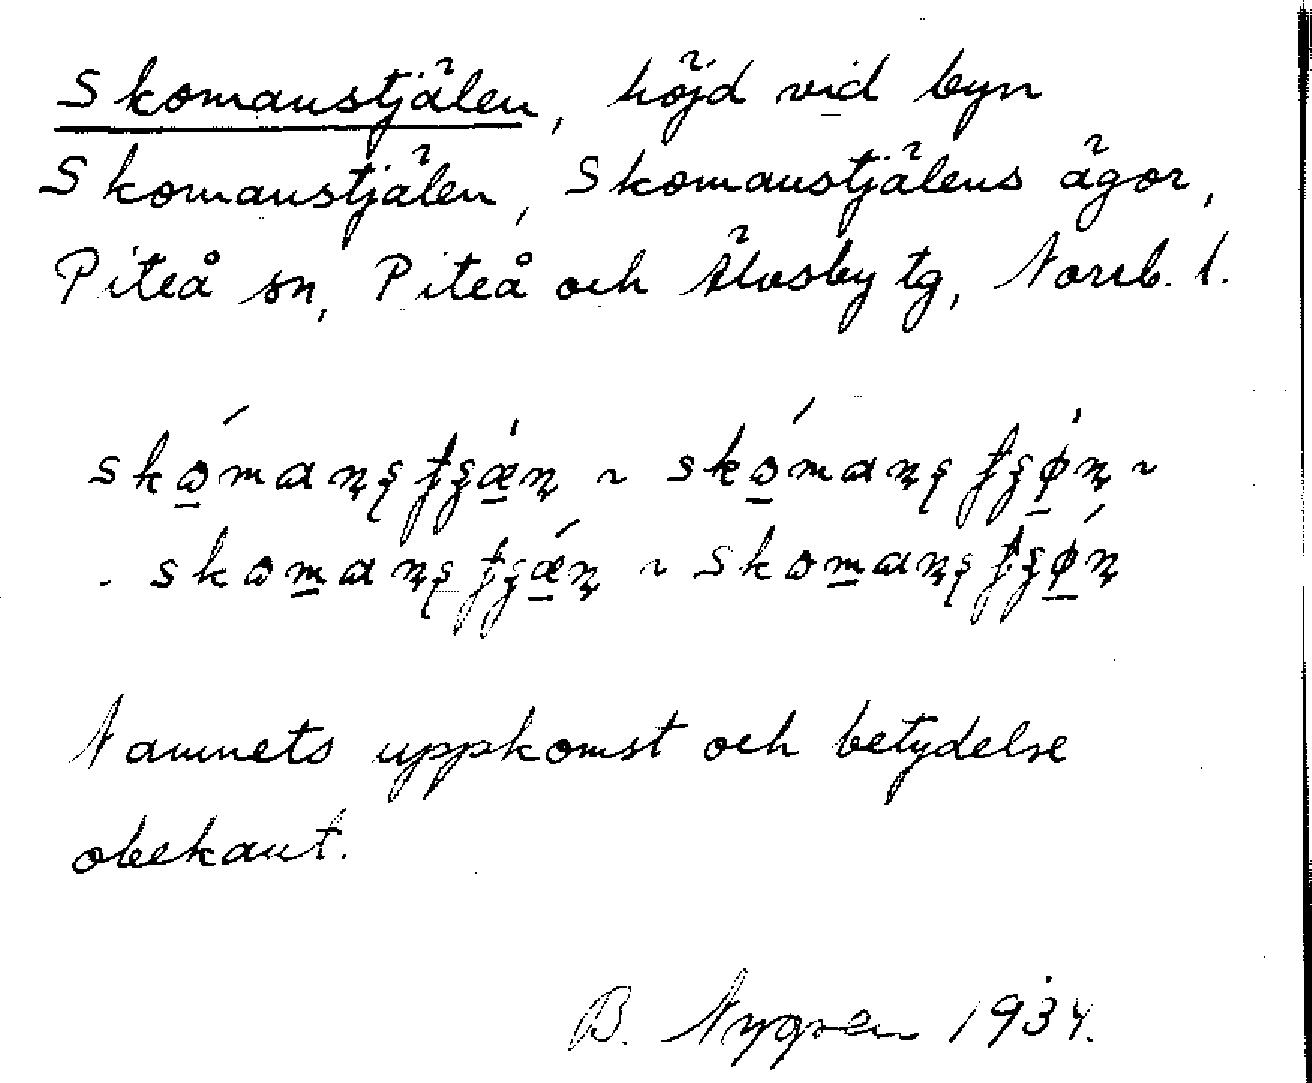 Skomanstjälen, höjd vid byn
Skomanstjälen, Skomanstjälens ägor,
Piteå sn, Piteå och Älvsby tg, Norrb. l.
Namnets uppkomst och betydelse
obekant.
B. Nygren 1934.